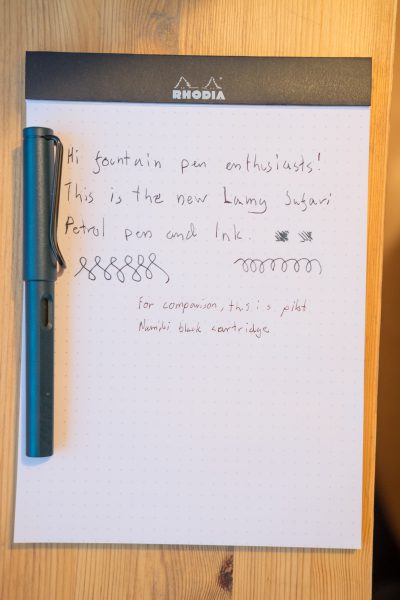 RHODIA
Hi fountain pen enthusiasts!
This is the new Lamy Safari
Petrol pen and Ink.
For comparison, this is pilot
Namiki black cartridge